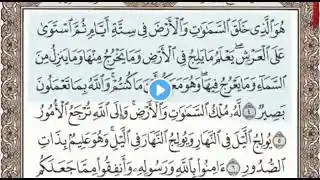 هُوَ ٱلَّذِى خَلَقَ ٱلسَّمَـٰوَٰتِ وَٱلْأَرْضَ فِى سِتَّةِ أَيَّامٍ ثُمَّ ٱسْتَوَىٰ
عَلَى ٱلْعَرْشِ يَعْلَمُ مَا يَلِجُ فِى ٱلْأَرْضِ وَمَا يَخْرُجُ مِنْهَا وَمَا يَنزِلُ مِنَ
ٱلسَّمَآءِ وَمَا يَعْرُجُ فِيهَا وَهُوَ مَعَكُمْ مَا كُنتُمْ وَٱللَّهُ بِمَا تَعْمَلُونَ
بَصِيرٌ ٤ لَّهُۥ مُلْكُ ٱلسَّمَـٰوَٰتِ وَٱلْأَرْضِ وَإِلَى ٱللَّهِ تُرْجَعُ ٱلْأُمُورُ
٥ يُولِجُ ٱلَّيْلَ فِى ٱلنَّهَارِ وَيُولِجُ ٱلنَّهَارَ فِى ٱلَّيْلِ وَهُوَ عَلِيمٌۢ بِذَاتِ
ٱلصُّدُورِ ٦ ءَامِنُوا۟ بِٱللَّهِ وَرَسُولِهِۦ وَأَنفِقُوا۟ مِمَّا جَعَلَكُم